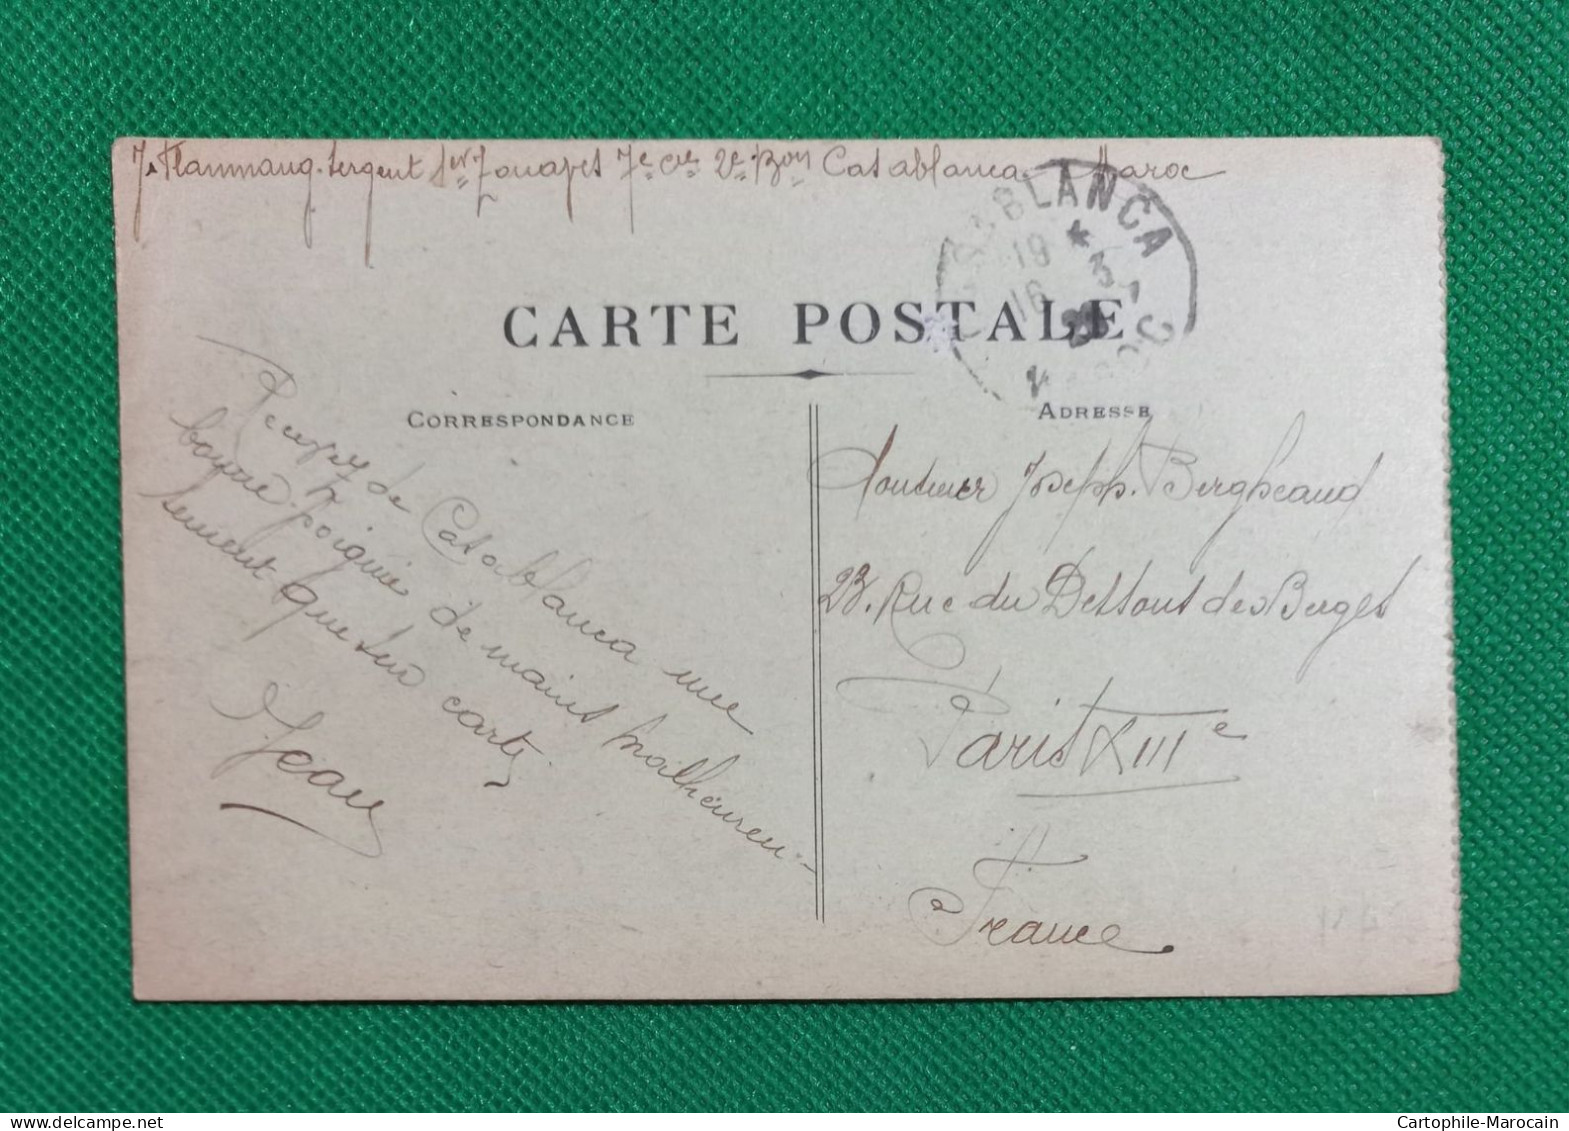 J. Flammang. Sergent 1er Zouaves 7e Cie 2e Bon Casablanca Maroc
CASABLANCA
19 * 3
16
MAROC
CARTE POSTALE
CORRESPONDANCE
de Casablanca une
bonne poignée de mains malheureu-
sement que sur carte
Jean
ADRESSE
Monsieur Joseph. Bergheaud
23. Rue du Dessous des Berges
Paris XIIIe
France
delcampe.net
Cartophile-Marocain